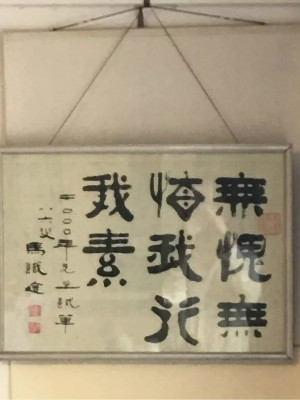 無愧無
悔我行
我素
二〇〇〇年元旦試筆
八六叟
馬識途